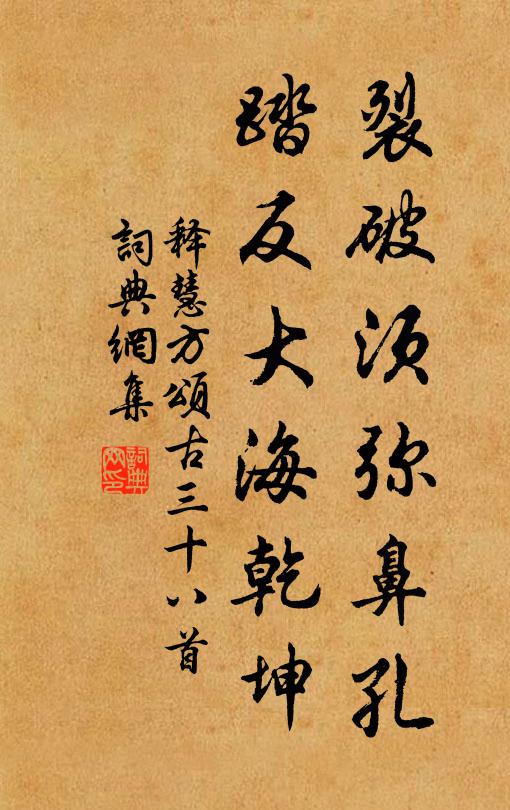 裂破须弥鼻孔
踏反大海乾坤
释慧方頌古三十八首
詞典網集
詞典網印